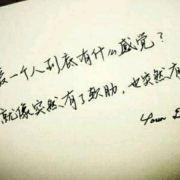 爱一个人到底有什么感觉？
就像突然有了软肋，也突然有